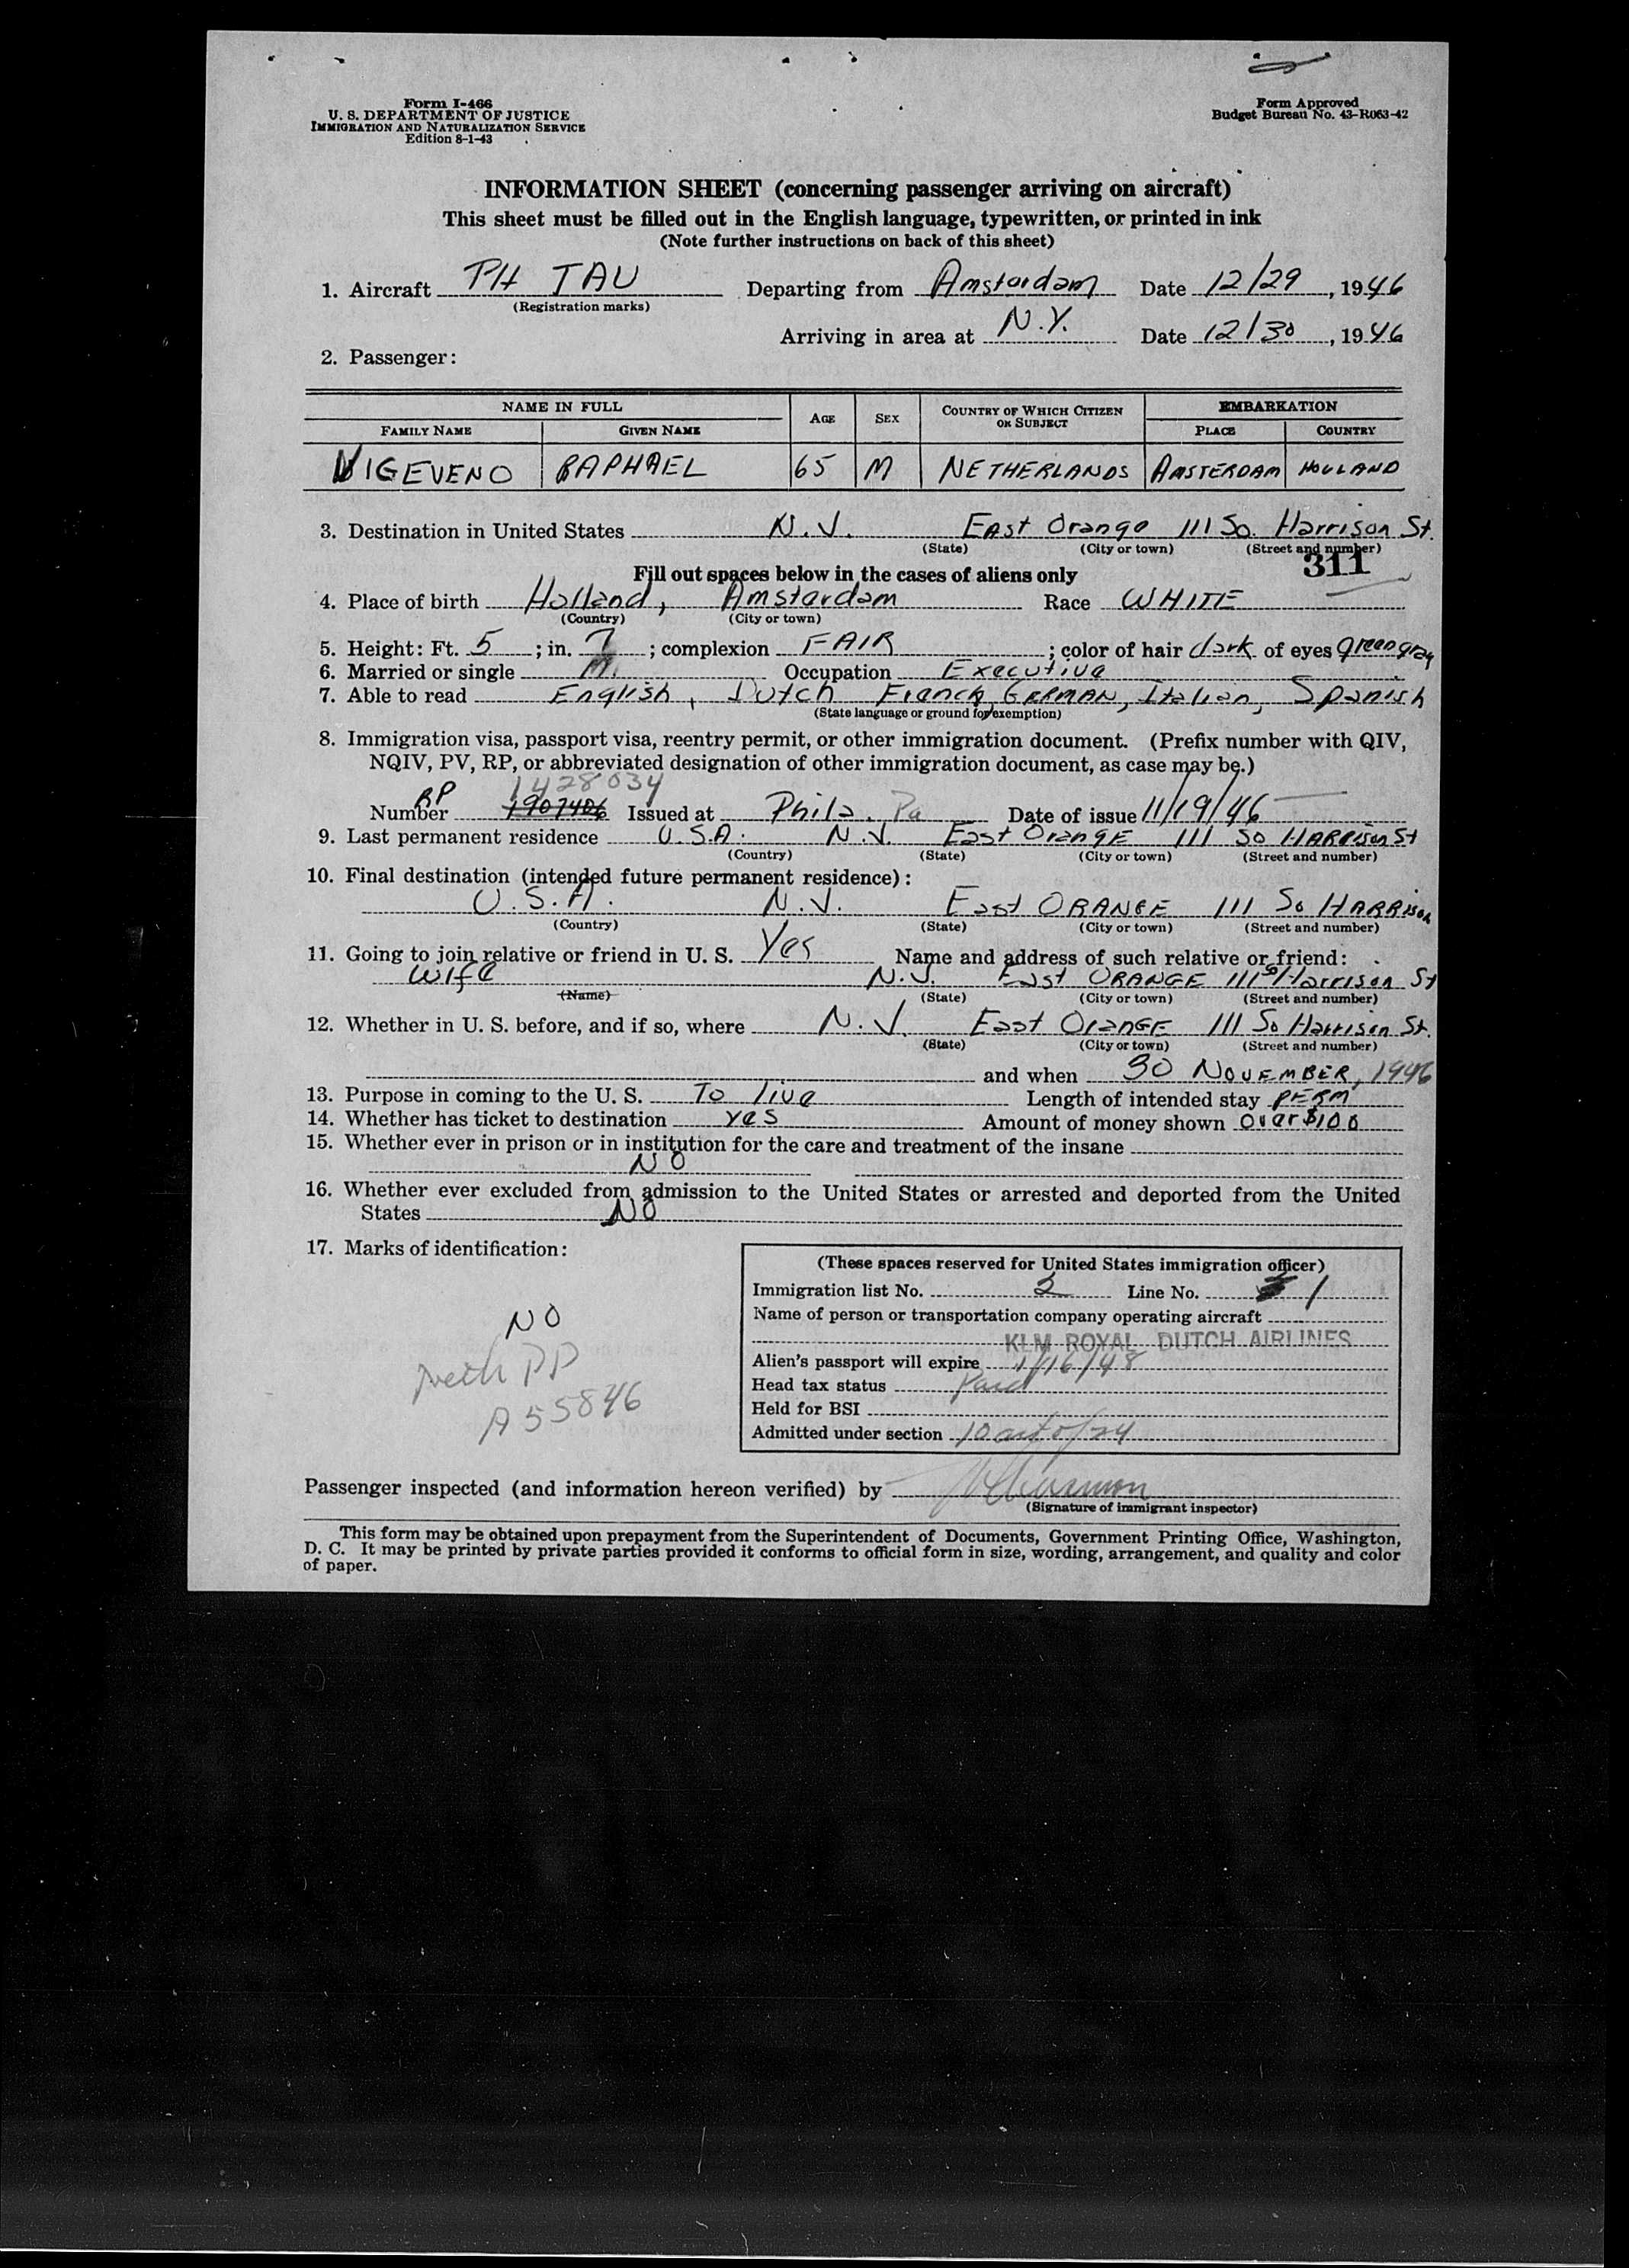 Form I-466
U. S. DEPARTMENT OF JUSTICE
IMMIGRATION AND NATURALIZATION SERVICE
Edition 8-1-43
Form Approved
Budget Bureau No. 43-R063-42
INFORMATION SHEET (concerning passenger arriving on aircraft)
This sheet must be filled out in the English language, typewritten, or printed in ink
(Note further instructions on back of this sheet)
1. Aircraft PH TAU Departing from Amsterdam Date 12/29, 1946
(Registration marks)
Arriving in area at N.Y. Date 12/30, 1946
2. Passenger:
NAME IN FULL AGE SEX COUNTRY OF WHICH CITIZEN OR SUBJECT EMBARKATION
FAMILY NAME GIVEN NAME PLACE COUNTRY
VIGEVENO RAPHAEL 65 M NETHERLANDS AMSTERDAM HOLLAND
3. Destination in United States N.J. East Orange 111 So. Harrison St.
(State) (City or town) (Street and number)
311
Fill out spaces below in the cases of aliens only
4. Place of birth Holland, Amsterdam Race WHITE
(Country) (City or town)
5. Height: Ft. 5; in. 7; complexion FAIR; color of hair dark of eyes green gray
6. Married or single M. Occupation Executive
7. Able to read English, Dutch French, GERMAN, Italian, Spanish
(State language or ground for exemption)
8. Immigration visa, passport visa, reentry permit, or other immigration document. (Prefix number with QIV,
NQIV, PV, RP, or abbreviated designation of other immigration document, as case may be.)
RP 1428034
Number 1907486 Issued at Phila. Pa Date of issue 11/19/46
9. Last permanent residence U.S.A. N.J. East OranGE 111 So HARRison St
(Country) (State) (City or town) (Street and number)
10. Final destination (intended future permanent residence):
U.S.A. N.J. East ORANGE 111 So HARRison
(Country) (State) (City or town) (Street and number)
11. Going to join relative or friend in U. S. Yes Name and address of such relative or friend:
Wife N.J. East ORANGE 111 So Harrison St
(Name) (State) (City or town) (Street and number)
12. Whether in U. S. before, and if so, where N.J. East OranGE 111 So Harrison St.
(State) (City or town) (Street and number)
and when 30 NOVEMBER, 1946
13. Purpose in coming to the U. S. To live Length of intended stay PERM
14. Whether has ticket to destination yes Amount of money shown Over $100
15. Whether ever in prison or in institution for the care and treatment of the insane
NO
16. Whether ever excluded from admission to the United States or arrested and deported from the United
States NO
17. Marks of identification:
NO
Neth PP
A 55846
(These spaces reserved for United States immigration officer)
Immigration list No. 2 Line No. 1
Name of person or transportation company operating aircraft
KLM ROYAL DUTCH AIRLINES
Alien's passport will expire 1/16/48
Head tax status Paid
Held for BSI
Admitted under section 10 act of 24
Passenger inspected (and information hereon verified) by
(Signature of immigrant inspector)
This form may be obtained upon prepayment from the Superintendent of Documents, Government Printing Office, Washington,
D. C. It may be printed by private parties provided it conforms to official form in size, wording, arrangement, and quality and color
of paper.